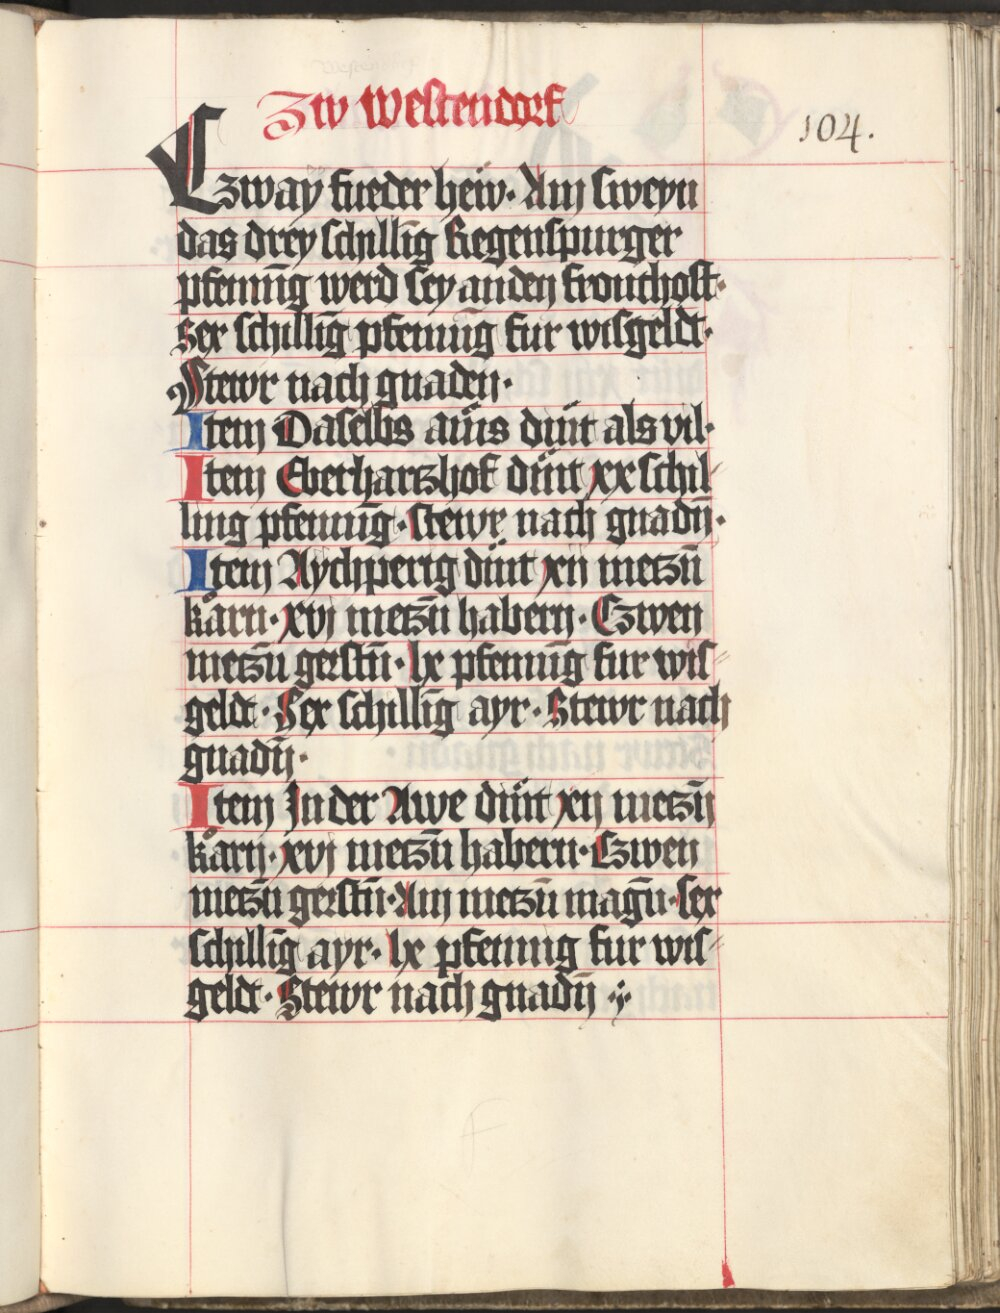 Zw Westendorf
104.
Czway fueder heiv. Ain sweyn
das drey schilling Regenspurger
pfennīg werd sey an den fronchoff.
Sex schillīg pfennīg fur wisgeldt.
Stewr nach gnaden.
Item Daselbs aüs dint als vil.
Item Eberhartzhof dint xx schil
ling pfennīg. stewr nach gnadn̄.
Item Aychperig dint xij metzn̄
karn. xvj metzn̄ habern. Czwen
metzn̄ gerstn̄. lx pfennīg fur wis
geldt. Sex schillīg ayr. Stewr nach
gnadn̄.
Item In der Awe dint xij metzn̄
karn. xvj metzn̄ habern. Czwen
metzn̄ gerstn̄. Ain metzn̄ magn̄. sex
schillīg ayr. lx pfennig fur wis
geldt. Stewr nach gnadn̄